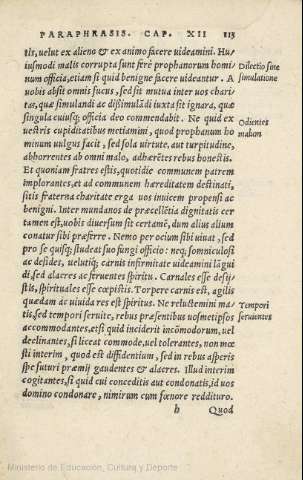 PARAPHRASIS. CAP. XII 113
tis, uelut ex alieno & ex animo facere uideamini. Hu/
iusmodi malis corrupta sunt ferè prophanorum homi/
num officia, etiam si quid benigne facere uideantur. A
uobis absit omnis fucus, sed sit mutua inter uos chari/
tas, quæ simulandi ac dissimulãdi iuxta sit ignara, quæ
singula cuiusq; officia deo commendabit. Ne quid ex
uestris cupiditatibus metiamini, quod prophanum ho
minum uulgus facit, sed sola uirtute, aut turpitudine,
abhorrentes ab omni malo, adhærẽtes rebus honestis.
Et quoniam fratres estis, quotidie communem patrem
implorantes, et ad communem hæreditatem destinati,
sitis fraterna charitate erga uos inuicem propensi ac
benigni. Inter mundanos de præcellẽtia dignitatis cer
tamen est, uobis diuersum sit certamẽ, dum alius alium
conatur sibi præferre. Nemo per ocium sibi uiuat, sed
pro se quisq; studeat suo fungi officio: neq; somniculosi
ac desides, uelutiq; carnis infirmitate uideamini lãgui
di, sed alacres ac feruentes spiritu. Carnales esse desi/
stis, spirituales esse cœpistis. Torpere carnis est, agilis
quædam ac uiuida res est spiritus. Ne reluctemini ma/
tis, sed tempori seruite, rebus præsentibus uosmetipsos
accommodantes, et si quid inciderit incõmodorum, uel
declinantes, si liceat commode, uel tolerantes, non mœ
sti interim, quod est diffidentium, sed in rebus asperis
spe futuri præmij gaudentes & alacres. Illud interim
cogitantes, si quid cui conceditis aut condonatis, id uos
domino condonare, nimirum cum fœnore redditurо.
h Quod
Dilectio sine
simulatione
Odientes
malum
Tempori
seruientes
Ministerio de Educación, Cultura y Deporte